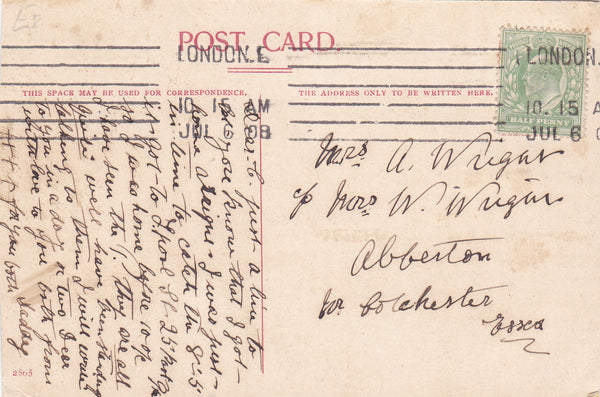 POST CARD.
LONDON.E
10. 15 AM
JUL 6 08
LONDON.
10. 15 A
JUL 6
HALF PENNY
THIS SPACE MAY BE USED FOR CORRESPONDENCE.
THE ADDRESS ONLY TO BE WRITTEN HERE.
just a line to
let you know that I got
home alright. I was just
in time to catch the 8-5
it got to L'pool St. 25 past
so I was home before 10 o/c
I have been the They are all
quite well have been
talking to them I will write
to you in a day or two Dear
with love to you both from
for you both
Mrs A. Wright
c/o Mrs W. Wright
Abberton
Nr Colchester
Essex
2565